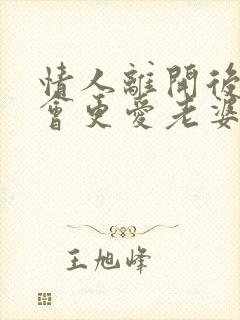 情人離開後
會更愛老婆
王旭峰